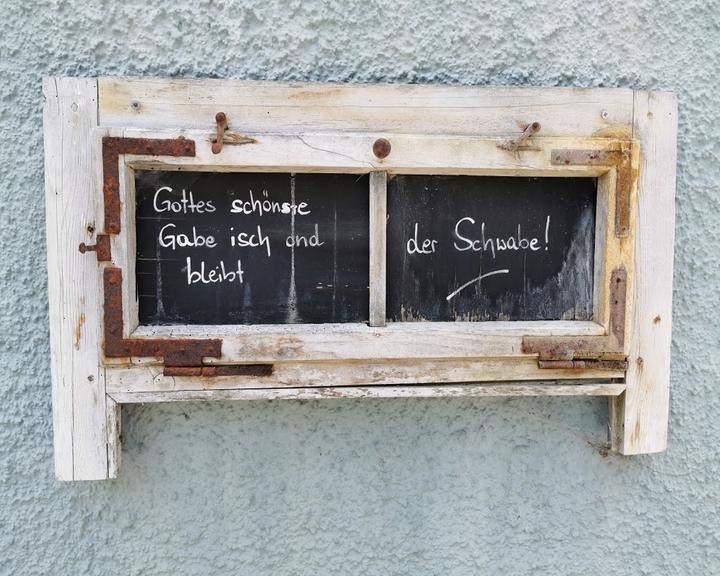 Gottes schönste
Gabe isch ond
bleibt
der Schwabe!